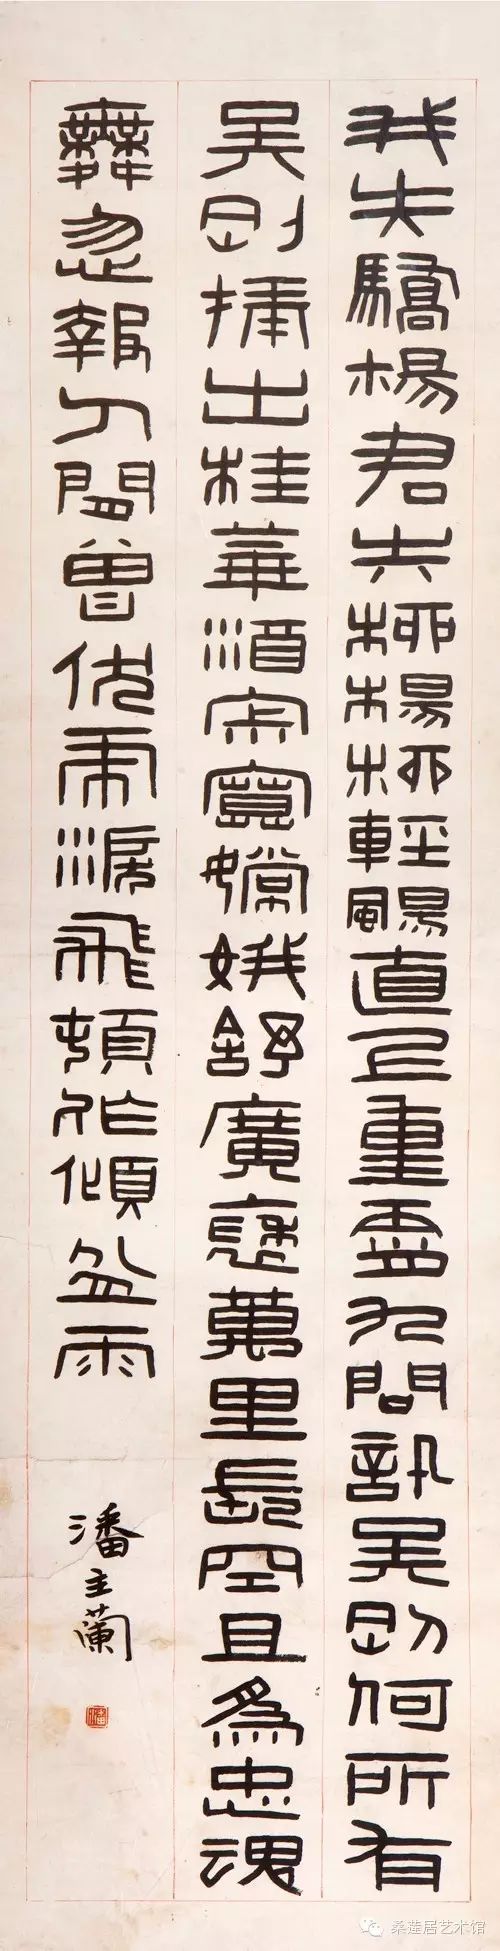 我失驕楊君失柳楊柳輕颺直上重霄九問訊吳剛何所有
吳剛捧出桂華酒寂寞嫦娥舒廣袖萬里長空且為忠魂
舞忽報人間曾伏虎淚飛頓作傾盆雨
潘主蘭
桑莲居艺术馆